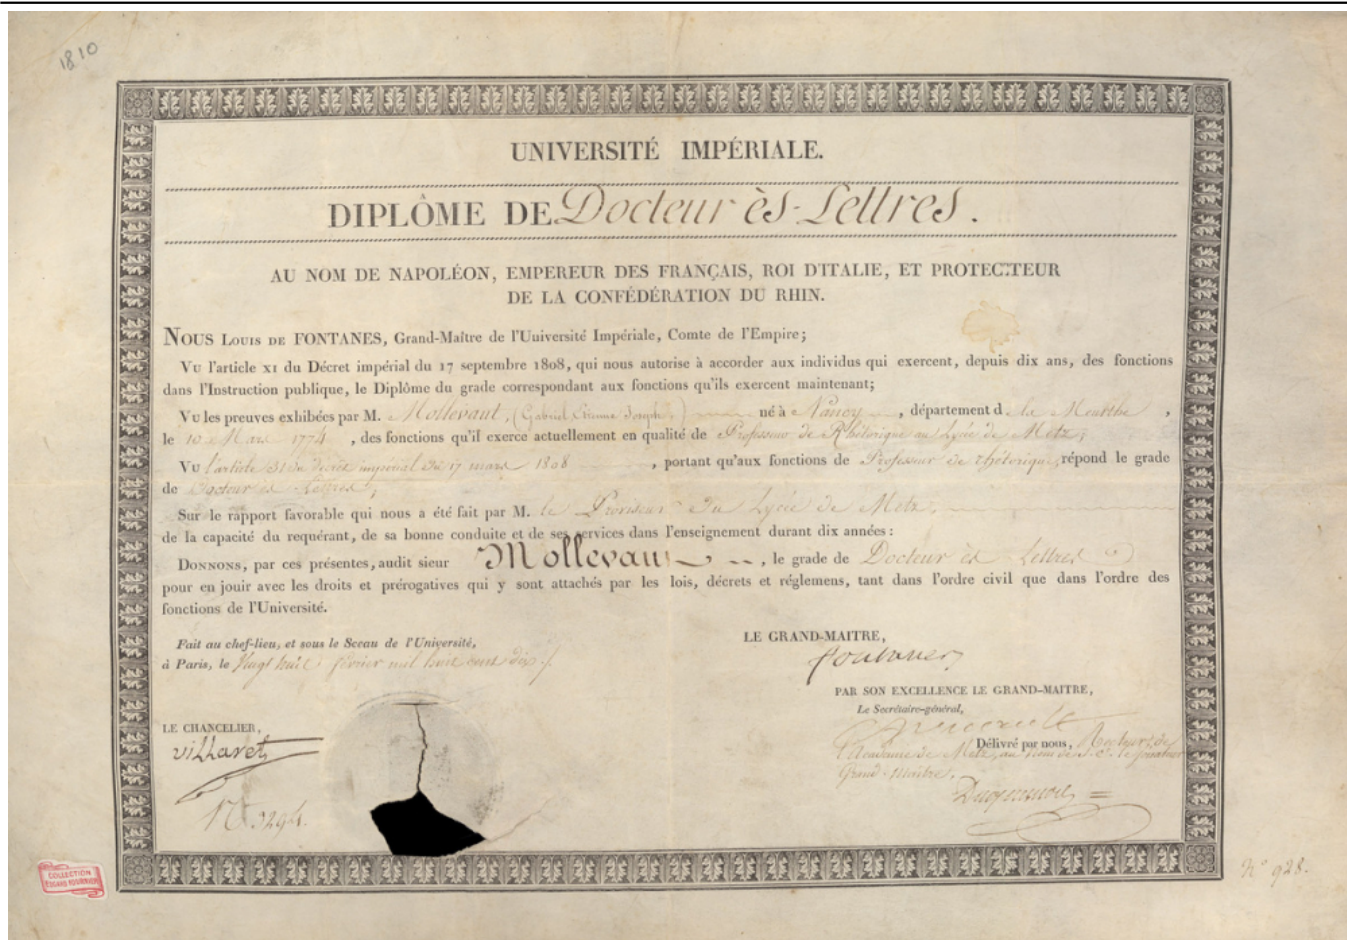 1810
UNIVERSITÉ IMPÉRIALE.
DIPLÔME DE Docteur ès-Lettres.
AU NOM DE NAPOLÉON, EMPEREUR DES FRANÇAIS, ROI D'ITALIE, ET PROTECTEUR
DE LA CONFÉDÉRATION DU RHIN.
NOUS LOUIS DE FONTANES, Grand-Maître de l'Université Impériale, Comte de l'Empire;
VU l'article XI du Décret impérial du 17 septembre 1808, qui nous autorise à accorder aux individus qui exercent, depuis dix ans, des fonctions
dans l'Instruction publique, le Diplôme du grade correspondant aux fonctions qu'ils exercent maintenant;
VU les preuves exhibées par M. Mollevaut, (Gabriel Etienne Joseph) né à Nancy, département d la Meurthe,
le 10 Mars 1774, des fonctions qu'il exerce actuellement en qualité de Professeur de Rhétorique au Lycée de Metz;
VU l'article 31 du décret impérial du 17 mars 1808, portant qu'aux fonctions de Professeur de rhétorique, répond le grade
de Docteur ès Lettres;
Sur le rapport favorable qui nous a été fait par M. le Proviseur du Lycée de Metz,
de la capacité du requérant, de sa bonne conduite et de ses services dans l'enseignement durant dix années :
DONNONS, par ces présentes, audit sieur Mollevaut, le grade de Docteur ès Lettres
pour en jouir avec les droits et prérogatives qui y sont attachés par les lois, décrets et réglemens, tant dans l'ordre civil que dans l'ordre des
fonctions de l'Université.
Fait au chef-lieu, et sous le Sceau de l'Université,
à Paris, le Vingt huit février mil huit cent dix.
LE GRAND-MAITRE,
Fontanes
PAR SON EXCELLENCE LE GRAND-MAITRE,
Le Secrétaire-général,
LE CHANCELIER,
Villaret
Délivré par nous, Recteur de
l'Académie de Metz, au nom de S. E. le sénateur
Grand-Maître.
N.° 3294.
COLLECTION
EDGARD FOURNIER
N° 928.